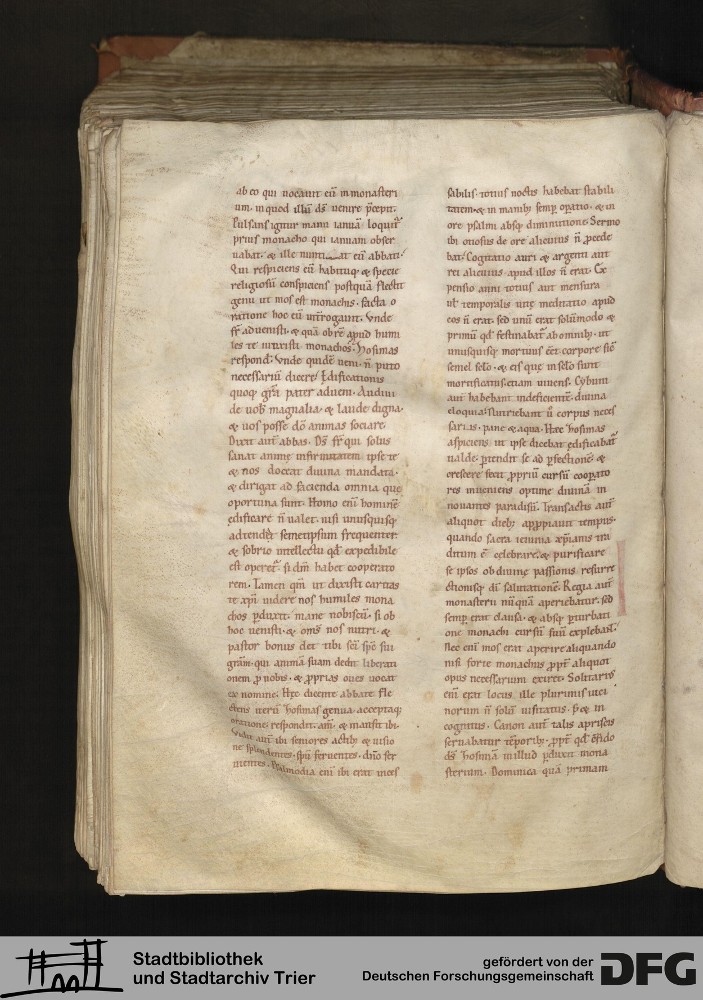 ab eo qui uocauit eū in monasteri
um. in quod illū ds̄ uenire p̄cepit.
Pulsans igitur manu ianuā loquit᷑
prius monacho qui ianuam obser
uabat. & ille nunti at eū abbati.
Qui respiciens eū habituq; & specie
religiosū conspiciens postquā flectit
genu ut mos est monachis. facta o
ratione hoc eū int̄rogauit. Vnde
fr̄ aduenisti. & quā ob rē apud humi
les te iunxisti monachos. Zosimas
respond. Vnde quidē ueni. n̄ puto
necessariū dicere. Edificationis
quoq; grā pater adueni. Audiui
de uob magnalia. & laude digna.
& uos posse dō animas sociare.
Dixit aut̄ abbas. Ds̄ fr̄ qui solus
sanat anime infirmitatem ipse te
& nos doceat diuina mandata.
& dirigat ad facienda omnia que
oportuna sunt. Homo eni hominē
edificare n̄ ualet. nisi unusquisq;
adtendat semetipsum frequenter.
& sobrio intellectu qd̄ expedibile
est operet᷑. si dm̄ habet cooperato
rem. Tamen qm̄ ut dixisti caritas
te xp̄i uidere nos humiles mona
chos p̄duxit. mane nobiscū. si ob
hoc uenisti. & om̄s nos nutri. &
pastor bonus det tibi sc̄i sp̄c sui
grām. qui animā suam dedit liberati
onem p nobis. & p̄prias oues uocat
ex nomine. Hęc dicente abbate fle
ctens iterū Zosimas genua. acceptaq;
oratione. respondit. am̄. & mansit ibi.
Vidit aut̄ ibi seniores actib; & uisio
ne splendentes. spū feruentes. dn̄o ser
uientes. Psalmodia eni ibi erat inces
sabilis. totius noctis habebat stabili
tatem. & in manib; semp opatio. & in
ore psalmi absq; diminutione. Sermo
ibi otiosus de ore alicuius n̄ p̄cede
bat. Cogitatio auri & argenti aut
rei alicuius. apud illos n̄ erat. Ex
pensio anni totius aut mensura
ul̄ temporalis uite meditatio apud
eos n̄ erat. sed unū erat solūmodo &
primū qd̄ festinabat᷑ ab omnib;. ut
unusquisq; mortuus eēt corpore sic̄
semel solo. & eis que in solo sunt
mortificatus. etiam uiuens. Cybum
aut̄ habebant indeficientē. diuina
eloquia. Nutriebant ū corpus neces
sariis. pane & aqua. Hęc Zosimas
aspiciens. ut ipse dicebat. edificabat᷑
ualde. p̄tendit se ad p̄fectionē. &
crescere fecit p̄priū cursū coopato
res inueniens optime diuinā in
nouantes paradisū. Transactis aut̄
aliquot dieb; appropiauit tempus.
quando sacra ieiunia xp̄ianis tra
ditum ē celebrare. & purificare
se ipsos ob diuine passionis resurre
ctionisq; di salutationē. Regia aut̄
monasterii nūquā aperiebatur. sed
semp erat clausa. & absq; p̄turbati
one monachi cursū suū explebant.
Nec eni mos erat aperire aliquando
nisi forte monachus p̄pt̄ aliquot
opus necessarium exiret. Solitarius
eni erat locus ille. plurimis uici
norum n̄ solū inusitatus. s; & in
cognitus. Canon aut̄ talis a priscis
seruabatur tēporib;. p̄pt̄ qd̄ credo
ds̄ Zosimā in illud p̄duxit mona
sterium. Dominica quā primam
Stadtbibliothek
und Stadtarchiv Trier
gefördert von der
Deutschen Forschungsgemeinschaft
DFG